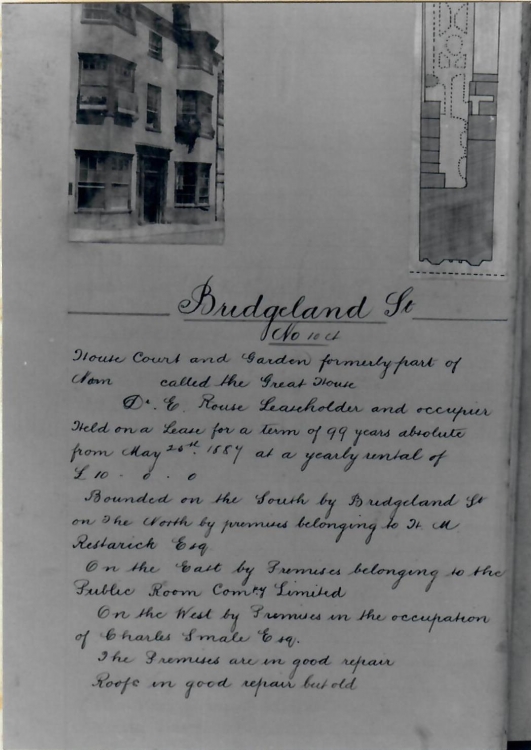 Bridgeland St
No 10 A
House Court and Garden formerly part of
Nom called the Great House
Dr. E. Rouse Leaseholder and occupier
Held on a Lease for a term of 99 years absolute
from May 26th. 1887 at a yearly rental of
£ 10 . 0 . 0
Bounded on the South by Bridgeland St
on The North by premises belonging to H. M
Restarick Esq
On the East by Premises belonging to the
Public Room Comṗy Limited
On the West by Premises in the occupation
of Charles Smale Esq.
The Premises are in good repair
Roofs in good repair but old